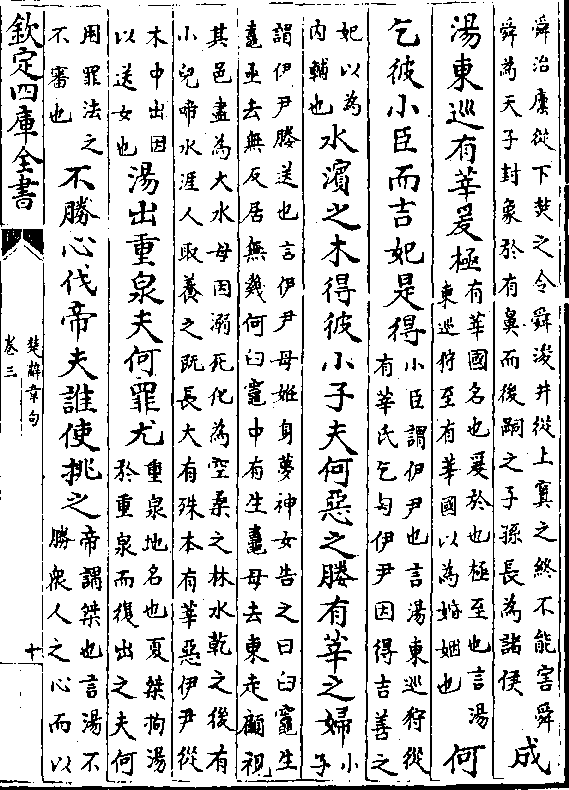 舜治廩從下焚之令舜浚井從上寘之終不能害舜
舜為天子封象於有鼻而後嗣之子孫長為諸侯
成
湯東巡有莘爰極
有莘國名也爰於也極至也言湯
東巡狩至有莘國以為婚姻也
何
乞彼小臣而吉妃是得
小臣謂伊尹也言湯東巡狩從
有莘氏乞匄伊尹因得吉善之
妃以為
內輔也
水濱之木得彼小子夫何惡之媵有莘之婦
小子
謂伊尹媵送也言伊尹母姙身夢神女告之曰臼竈生
鼃亟去無反居無幾何臼竈中有生鼃母去東走顧視
其邑盡為大水母因溺死化為空桑之林水乾之後有
小兒啼水涯人取養之既長大有殊本有莘惡伊尹從
木中出因
以送女也
湯出重泉夫何罪尤
重泉地名也夏桀拘湯
於重泉而復出之夫何
用罪法之
不審也
不勝心伐帝夫誰使挑之
帝謂桀也言湯不
勝衆人之心而以
欽定四庫全書
楚辭章句
卷三
十